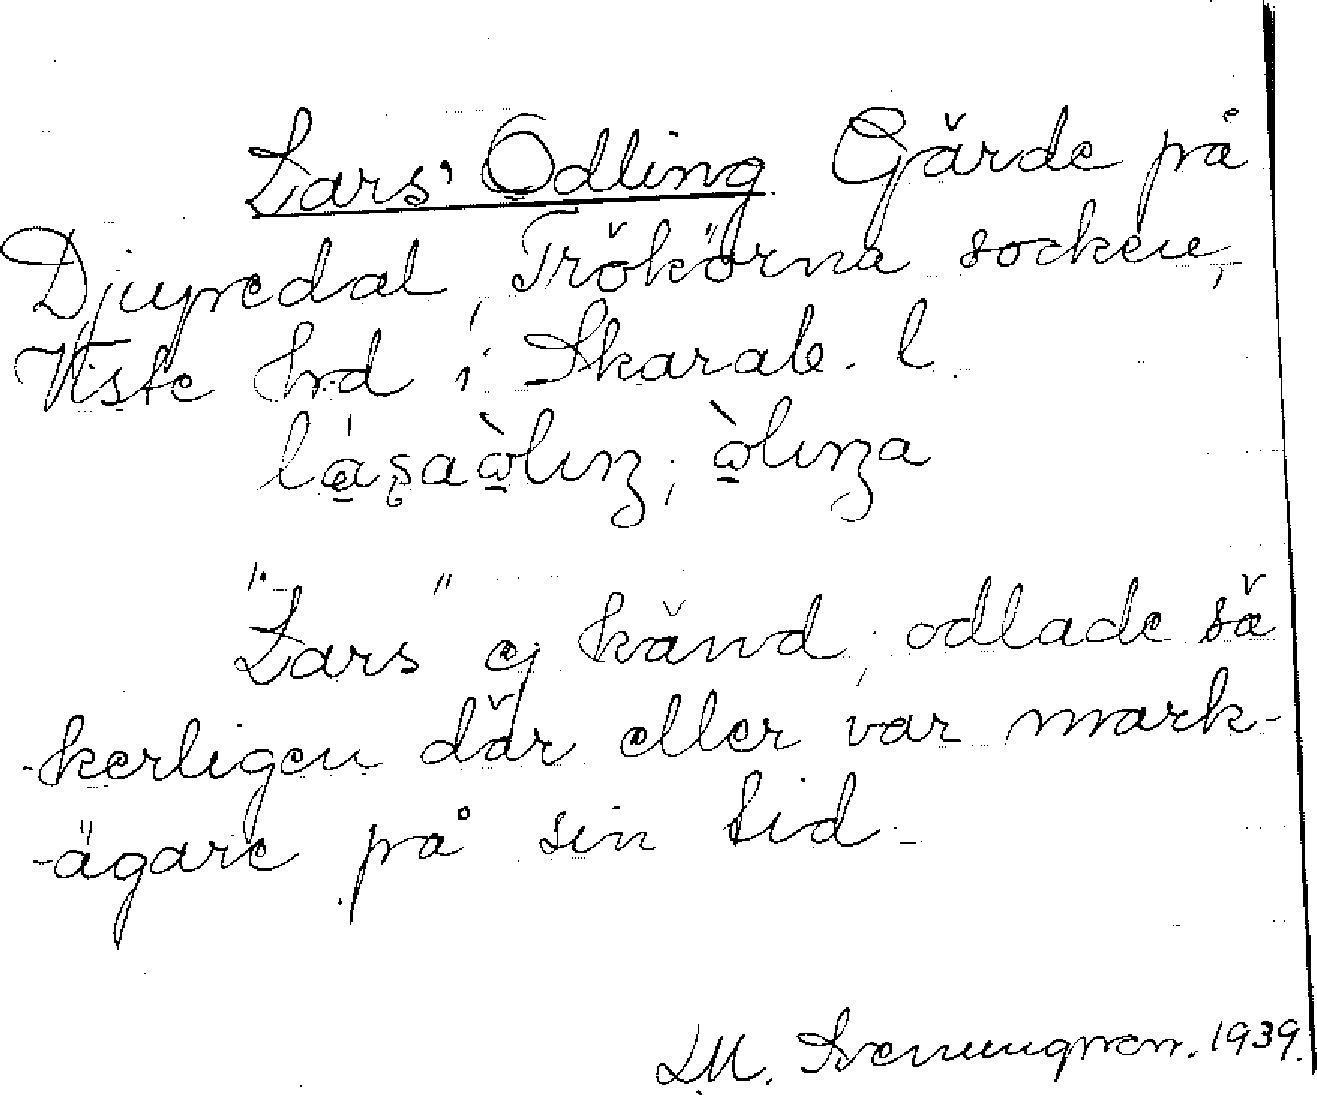 Lars' Odling Gärde på
Djupedal, Trökörna socken,
Viste hrd i Skarab. l.
"Lars" ej känd, odlade sä
-kerligen där eller var mark-
-ägare på sin tid.
1939.